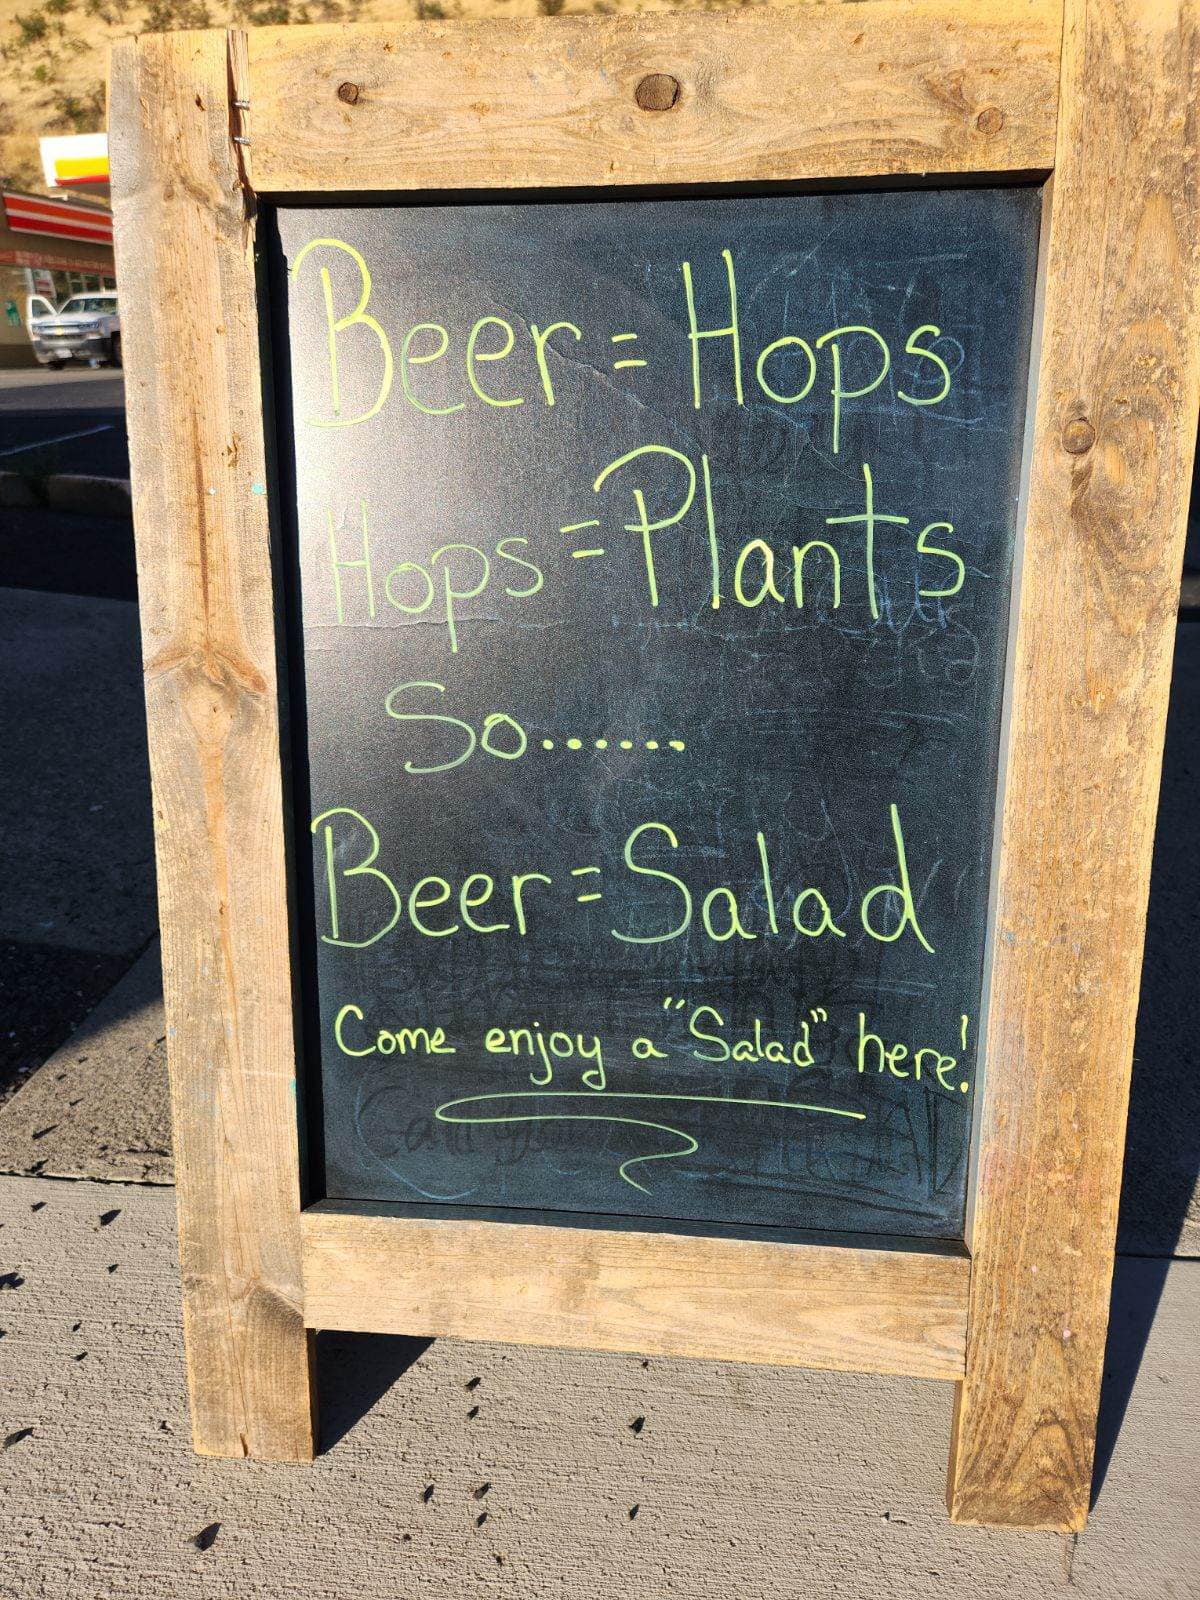 Beer = Hops
Hops = Plants
So......
Beer = Salad
Come enjoy a "Salad" here!